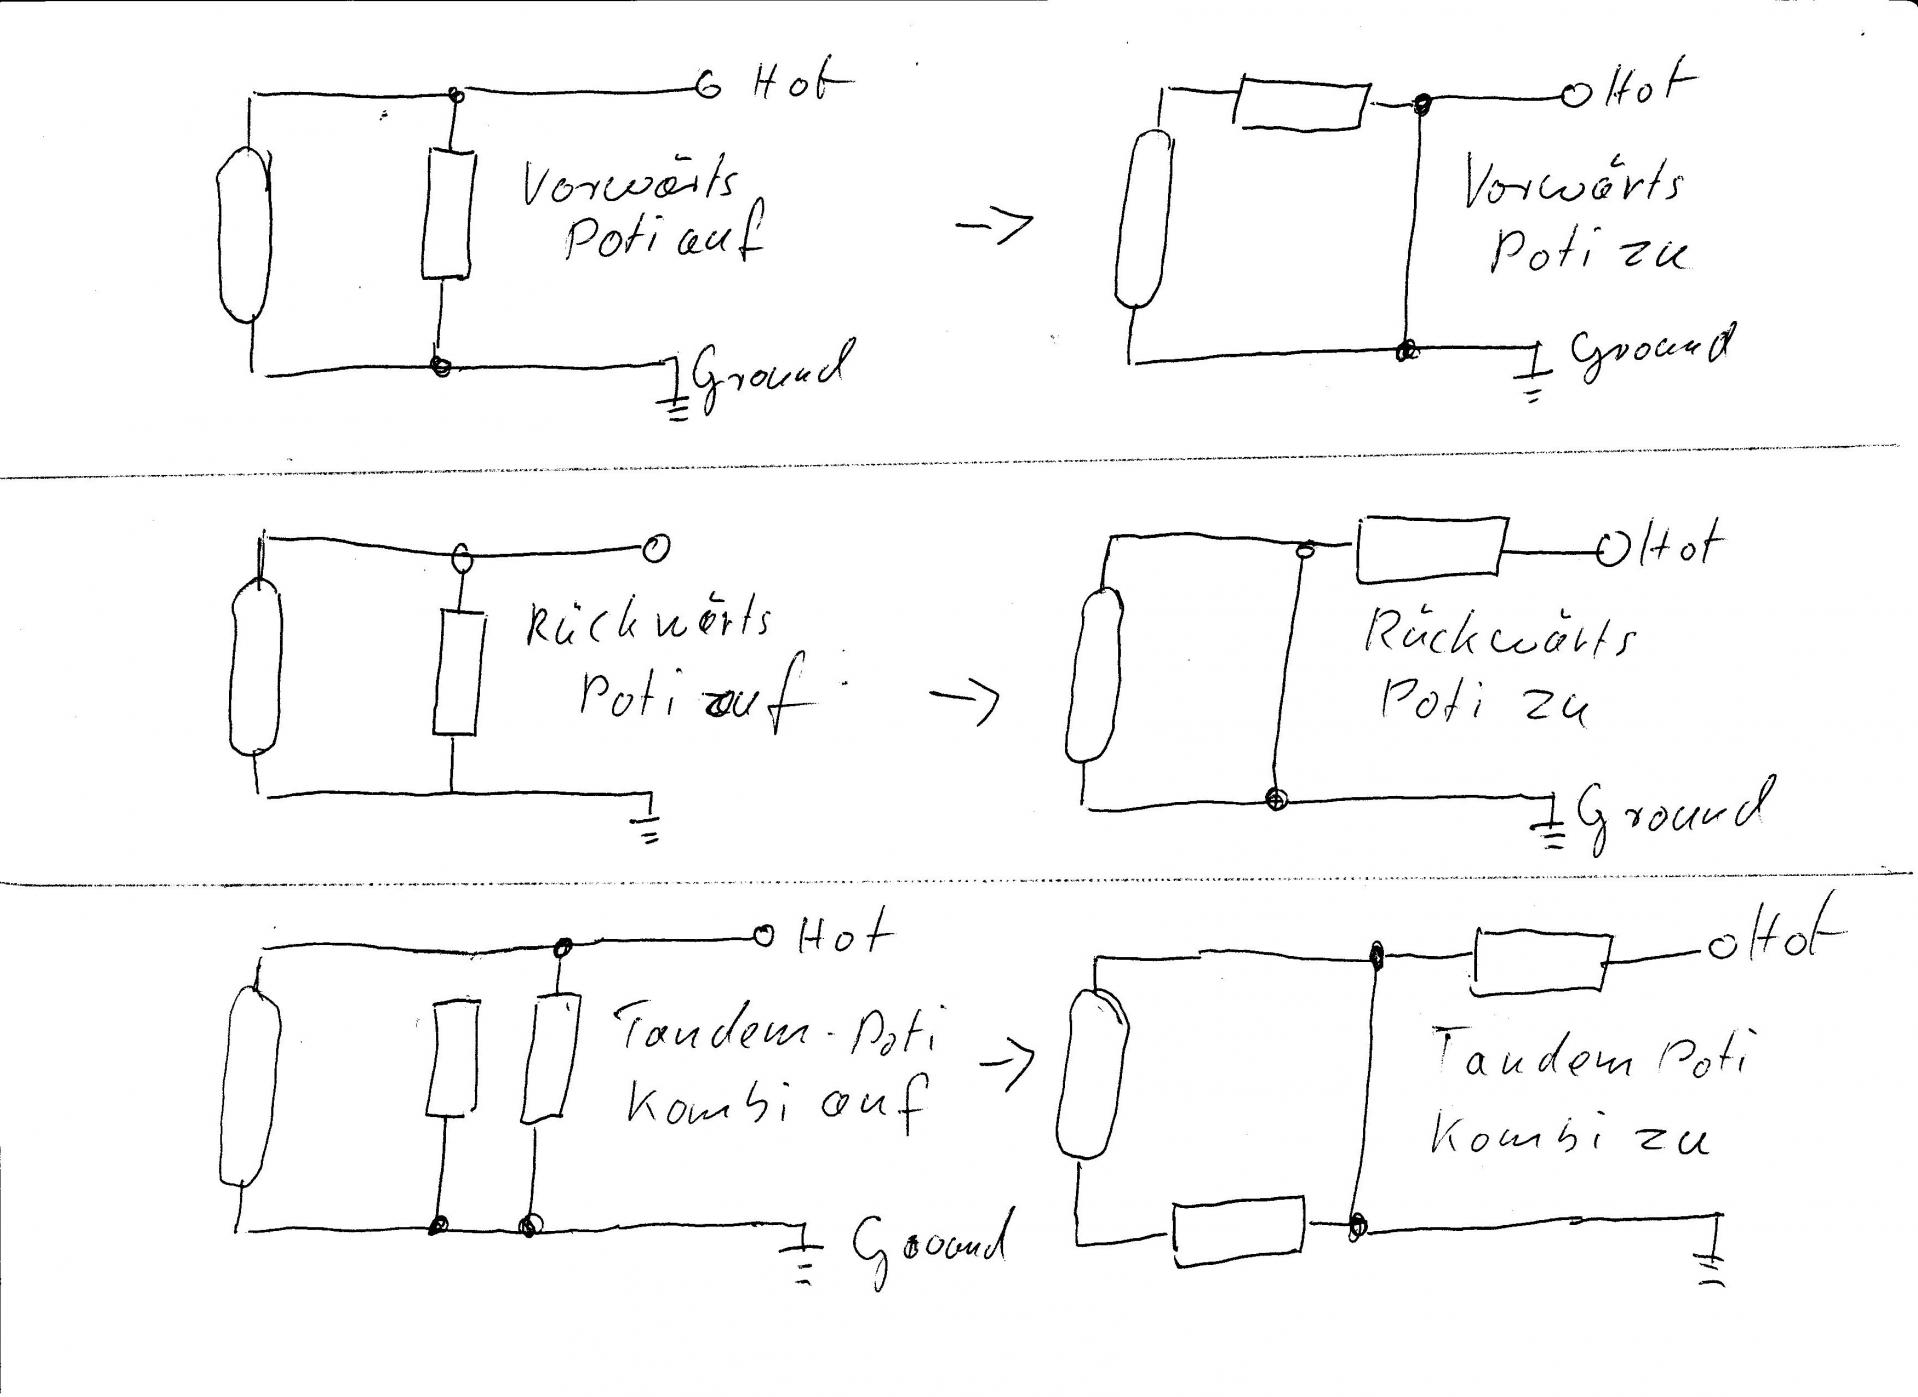 Hot
Vorwärts
Poti auf
Ground
->
Hot
Vorwärts
Poti zu
Ground
Rückwärts
Poti auf
->
Hot
Rückwärts
Poti zu
Ground
Hot
Tandem-Poti
Kombi auf
Ground
->
Hot
Tandem Poti
Kombi zu